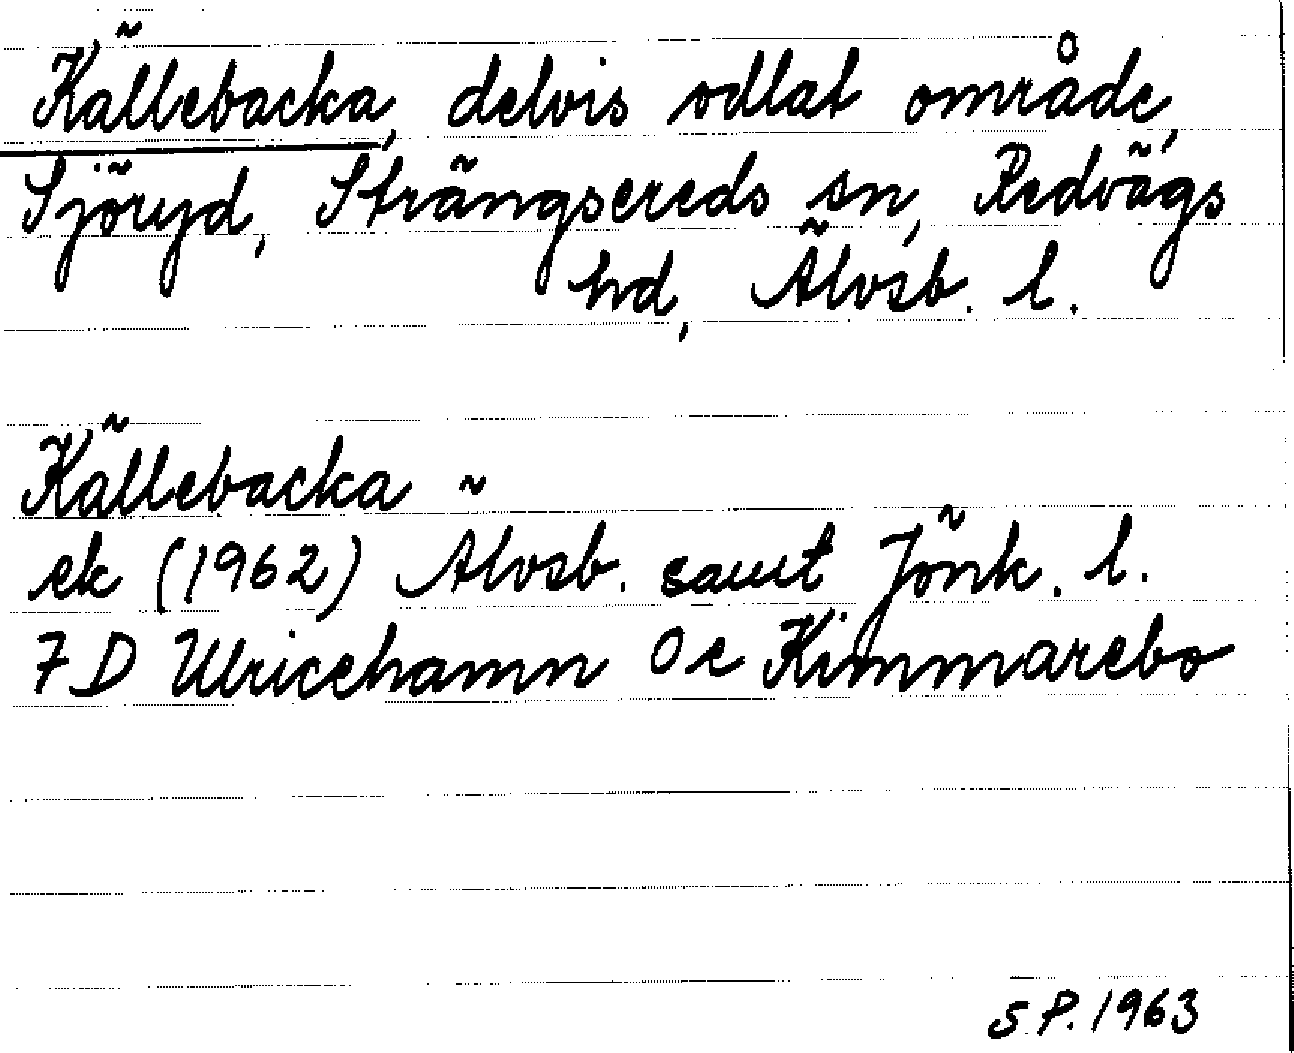 Källebacka, delvis odlat område,
Sjöryd, Strängsereds sn, Redvägs
hd, Älvsb. l.
Källebacka
ek (1962) Älvsb. samt Jönk. l.
7 D Ulricehamn 0 e Kimmarebo
S.P. 1963